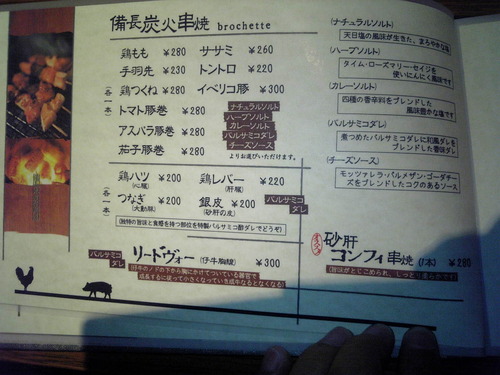 備長炭火串焼 brochette
(各一本)
鶏もも ¥280
手羽先 ¥230
鶏つくね ¥200
トマト豚巻 ¥280
アスパラ豚巻 ¥280
茄子豚巻 ¥280
ササミ ¥260
トントロ ¥220
イベリコ豚 ¥300
ナチュラルソルト
ハーブソルト
カレーソルト
バルサミコダレ
チーズソース
よりお選びいただけます。
(各一本)
鶏ハツ ¥200
(心臓)
つなぎ ¥200
(大動脈)
鶏レバー ¥220
(肝臓)
銀皮 ¥200
(砂肝の皮)
バルサミコ
ダレ
(独特の旨味と食感を持つ部位を特製バルサミコ酢ダレでどうぞ)
バルサミコ
ダレ
リードヴォー (仔牛胸腺) ¥300
(仔牛のノドの下から胸にかけてついている器官で
成長するに従って小さくなっていき成牛になるとなくなる)
砂肝
コンフィ串焼 (1本) ¥280
(ナチュラルソルト)
天日塩の風味が生きた、まろやかな塩
(ハーブソルト)
タイム・ローズマリー・セイジを
使いにんにく風味です
(カレーソルト)
四種の香辛料をブレンドした
風味豊かな塩です
(バルサミコダレ)
煮つめたバルサミコに和風ダレを
ブレンドした香味ダレ
(チーズソース)
モッツァレラ・パルメザン・ゴーダチー
ズをブレンドしたコクのあるソース